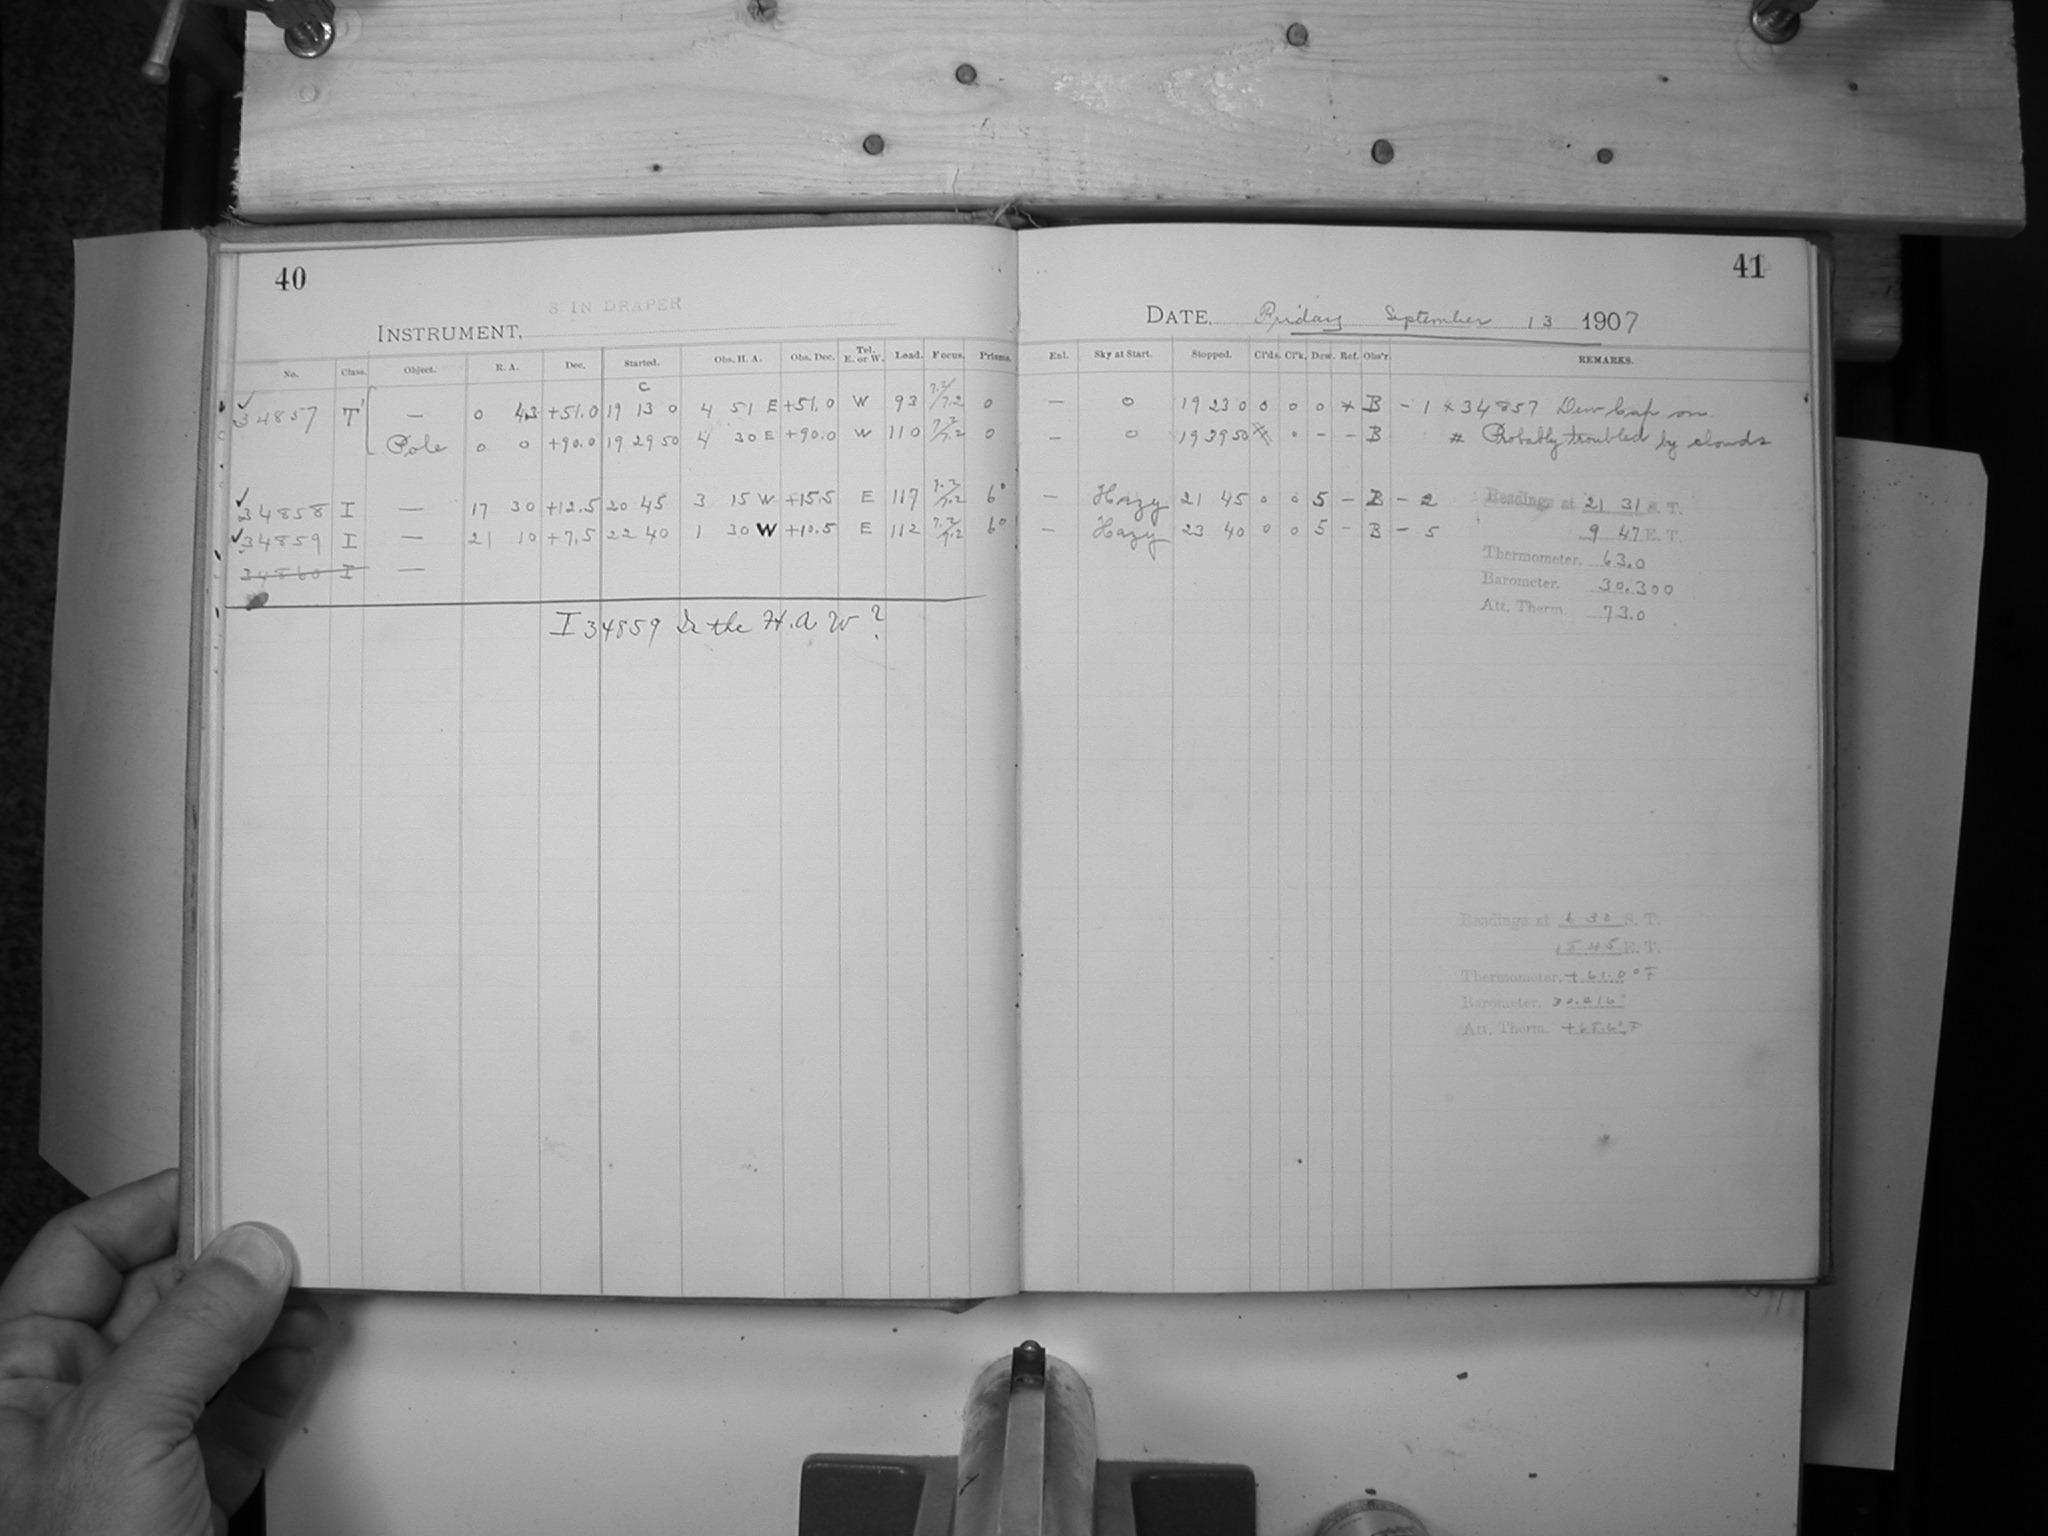 40
8 IN DRAPER
INSTRUMENT,
No. Class. Object. R. A. Dec. Started. Obs. H. A. Obs. Dec. Tel. E. or W. Lead. Focus. Prisms.
C
34857 T' — 0 43 +51.0 19 13 0 4 51 E +51.0 W 93 7.2/7.2 0
Pole 0 0 +90.0 19 29 50 4 30 E +90.0 W 110 7.2/7.2 0
34858 I — 17 30 +12.5 20 45 3 15 W +15.5 E 117 7.2/7.2 6°
34859 I — 21 10 +7.5 22 40 1 30 W +10.5 E 112 7.2/7.2 6°
34860 I —
I 34859 Is the H.A W ?
41
DATE, Friday September 13 1907
Enl. Sky at Start. Stopped. Cl'ds. Cl'k. Dew. Ref. Obs'r. REMARKS.
— 0 19 23 0 0 0 0 * B – 1 x 34857 Dew Cap on
— 0 19 39 50 # 0 – – B # Probably troubled by clouds
— Hazy 21 45 0 0 5 – B – 2
— Hazy 23 40 0 0 5 – B – 5
Readings at 21 31 S. T.
9 47 E. T.
Thermometer. 63.0
Barometer. 30.300
Att. Therm. 73.0
Readings at 6 30 S. T.
E. T.
Thermometer. +61.0°F
Barometer.
Att. Therm.